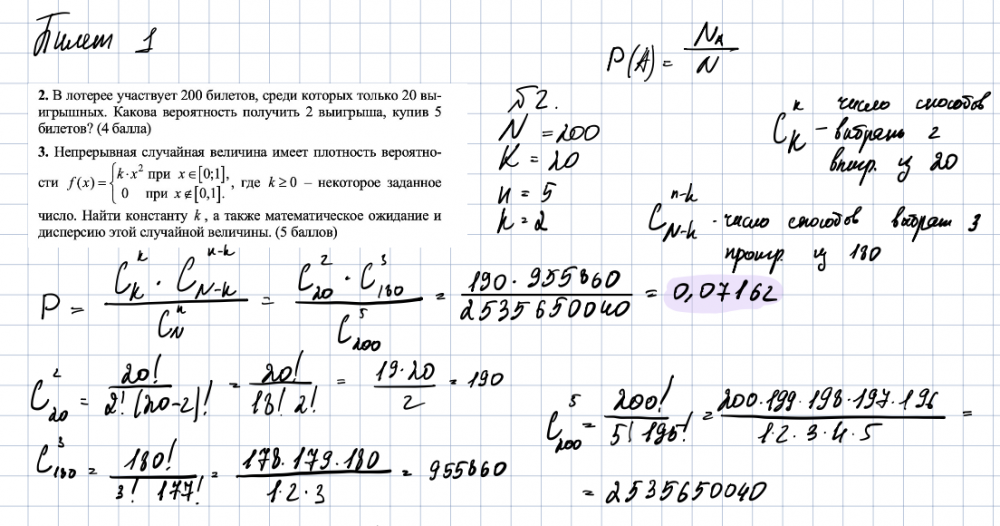 Билет 1
P(A) = N_A / N
2. В лотерее участвует 200 билетов, среди которых только 20 вы-
игрышных. Какова вероятность получить 2 выигрыша, купив 5
билетов? (4 балла)
3. Непрерывная случайная величина имеет плотность вероятно-
сти f(x) = { k·x² при x∈[0;1], 0 при x∉[0,1]. , где k ≥ 0 – некоторое заданное
число. Найти константу k , а также математическое ожидание и
дисперсию этой случайной величины. (5 баллов)
№2.
N = 200
K = 20
n = 5
k = 2
C_K^k – число способов
выбрать 2
выигр. из 20
C_{N-k}^{n-k} · число способов выбрать 3
проигр. из 180
P = C_K^k · C_{N-k}^{n-k} / C_N^n = C_20^2 · C_180^3 / C_200^5 = 190·955860 / 2535650040 = 0,07162
C_20^2 = 20! / 2!(20-2)! = 20! / 18! 2! = 19·20 / 2 = 190
C_180^3 = 180! / 3! 177! = 178·179·180 / 1·2·3 = 955860
C_200^5 = 200! / 5! 195! = 200·199·198·197·196 / 1·2·3·4·5 =
= 2535650040